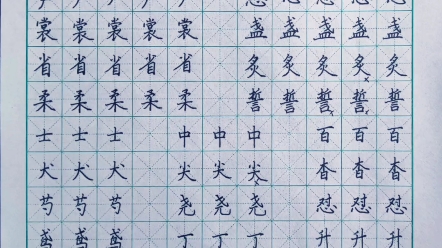 裳裳裳裳裳 盏盏盏盏盏
省省省省省 炙炙炙炙炙
柔柔柔柔柔 誓誓誓誓誓
士士士 中中中 百百百
犬犬犬 尖尖尖 杳杳杳
芍芍芍 尧尧尧 怼怼怼
鸢鸢鸢 丁丁丁 升升升